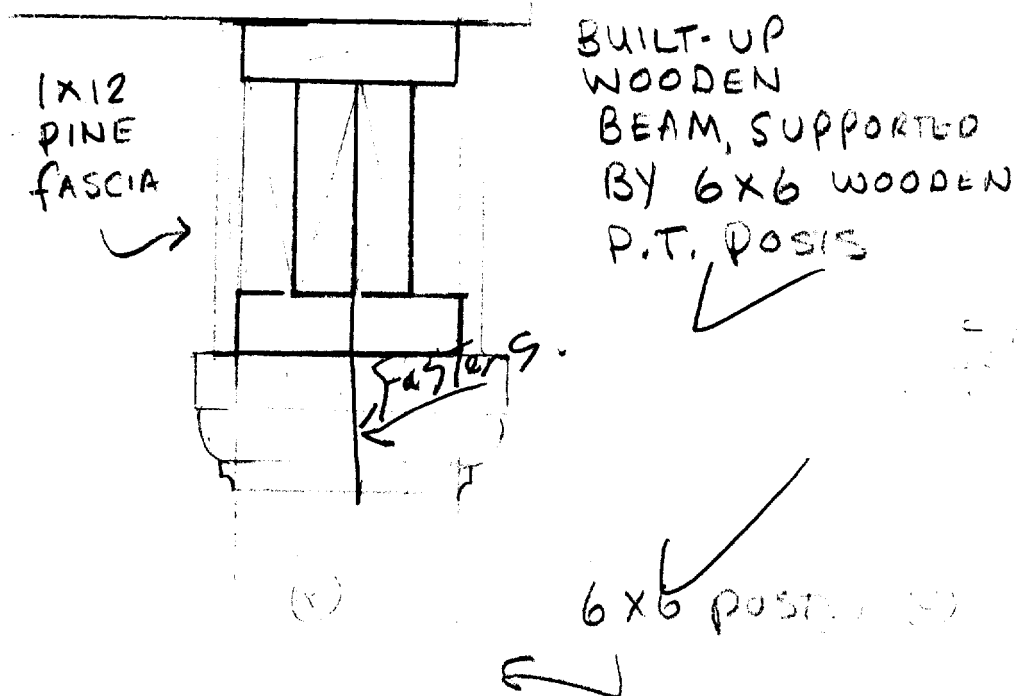 1X12
PINE
FASCIA
BUILT-UP
WOODEN
BEAM, SUPPORTED
BY 6X6 WOODEN
P.T. POSTS
6X6 POST